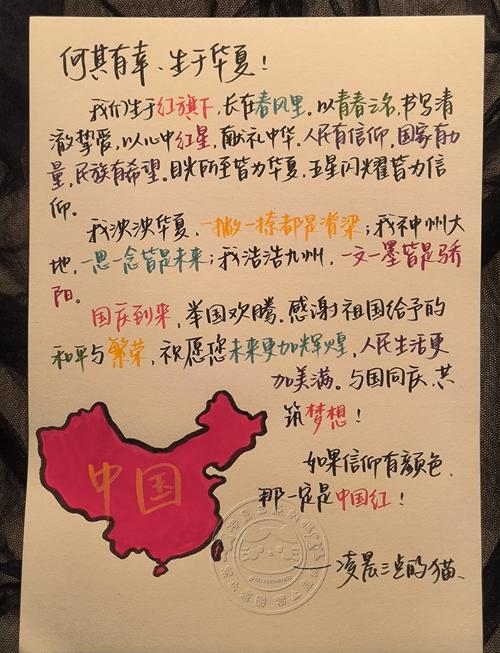 何其有幸、生于华夏！
我们生于红旗下，长在春风里。以青春之名，书写清
澈挚爱，以心中红星，献礼中华。人民有信仰，国家有力
量，民族有希望。目光所至皆为华夏，五星闪耀皆为信
仰。
我泱泱华夏，一撇一捺都是脊梁；我神州大
地，一思一念皆是未来；我浩浩九州，一文一墨皆是骄
阳。
国庆到来，举国欢腾。感谢祖国给予的
和平与繁荣，祝愿您未来更加辉煌，人民生活更
加美满。与国同庆、共
筑梦想！
中国
如果信仰有颜色、
那一定是中国红！
——凌晨三点的猫、